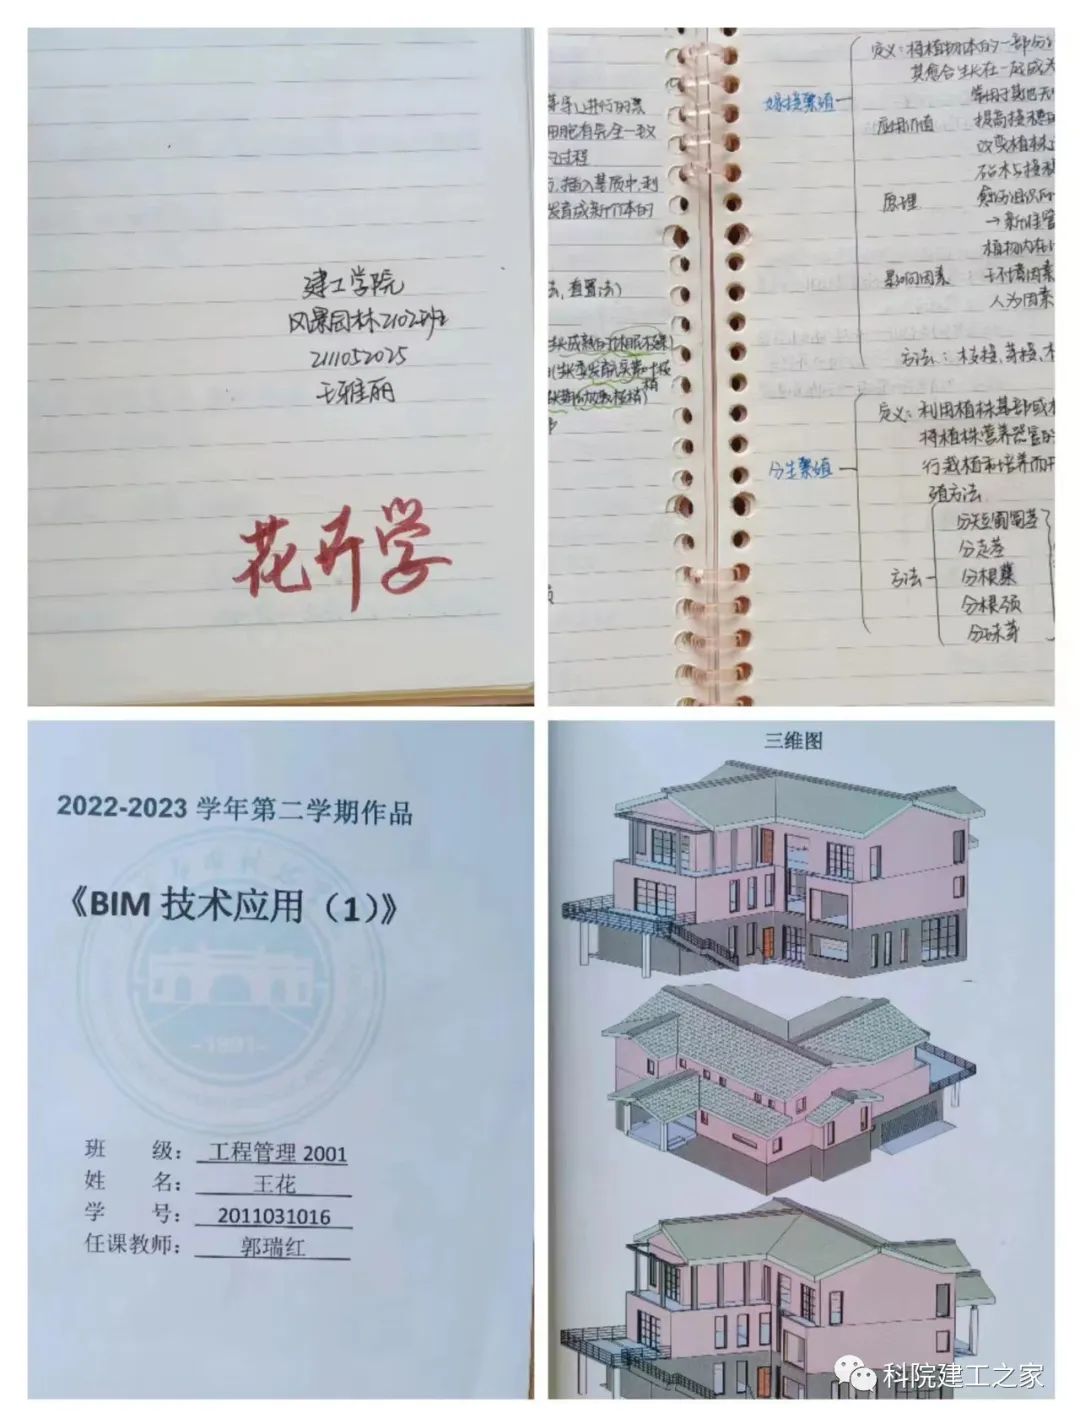 建工学院
风景园林2102班
2111052025
王雅丽
花卉学
导)进行的
胞有完全一致
过程
插入基质中,利
发育成新个体的
法,直置法)
嫁接繁殖
定义:将植物体的一部分
其愈合生长在一起成为
常用于其他无
应用价值
提高接穗
改变植株
砧木与接穗
原理
愈伤组织
→新维管
植物内在
影响因素
环境因素
人为因素
方法:枝接、芽接、
分生繁殖
定义:利用植株基部或
将植株营养器官的
行栽植和培养而
殖方法
方法
分短匍匐茎
分走茎
分根蘖
分根颈
分珠芽
2022-2023 学年第二学期作品
《BIM 技术应用（1）》
-1891-
班 级: 工程管理 2001
姓 名: 王花
学 号: 2011031016
任课教师: 郭瑞红
三维图
科院建工之家